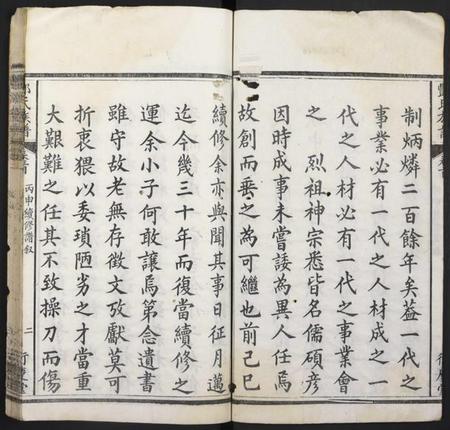 制炳燐二百餘年矣蓋一代之
事業必有一代之人材成之一
代之人材必有一代之事業會
之 烈祖神宗悉皆名儒碩彥
因時成事未嘗諉為異人任焉
故創而垂之為可繼也前己巳
續修余亦與聞其事日征月邁
迄今幾三十年而復當續修之
運余小子何敢讓焉第念遺書
雖守故老無存徵文攷獻莫可
折衷猥以委瑣陋劣之才當重
大艱難之任其不致操刀而傷
氏族譜 卷首 丙申續修譜敘 二